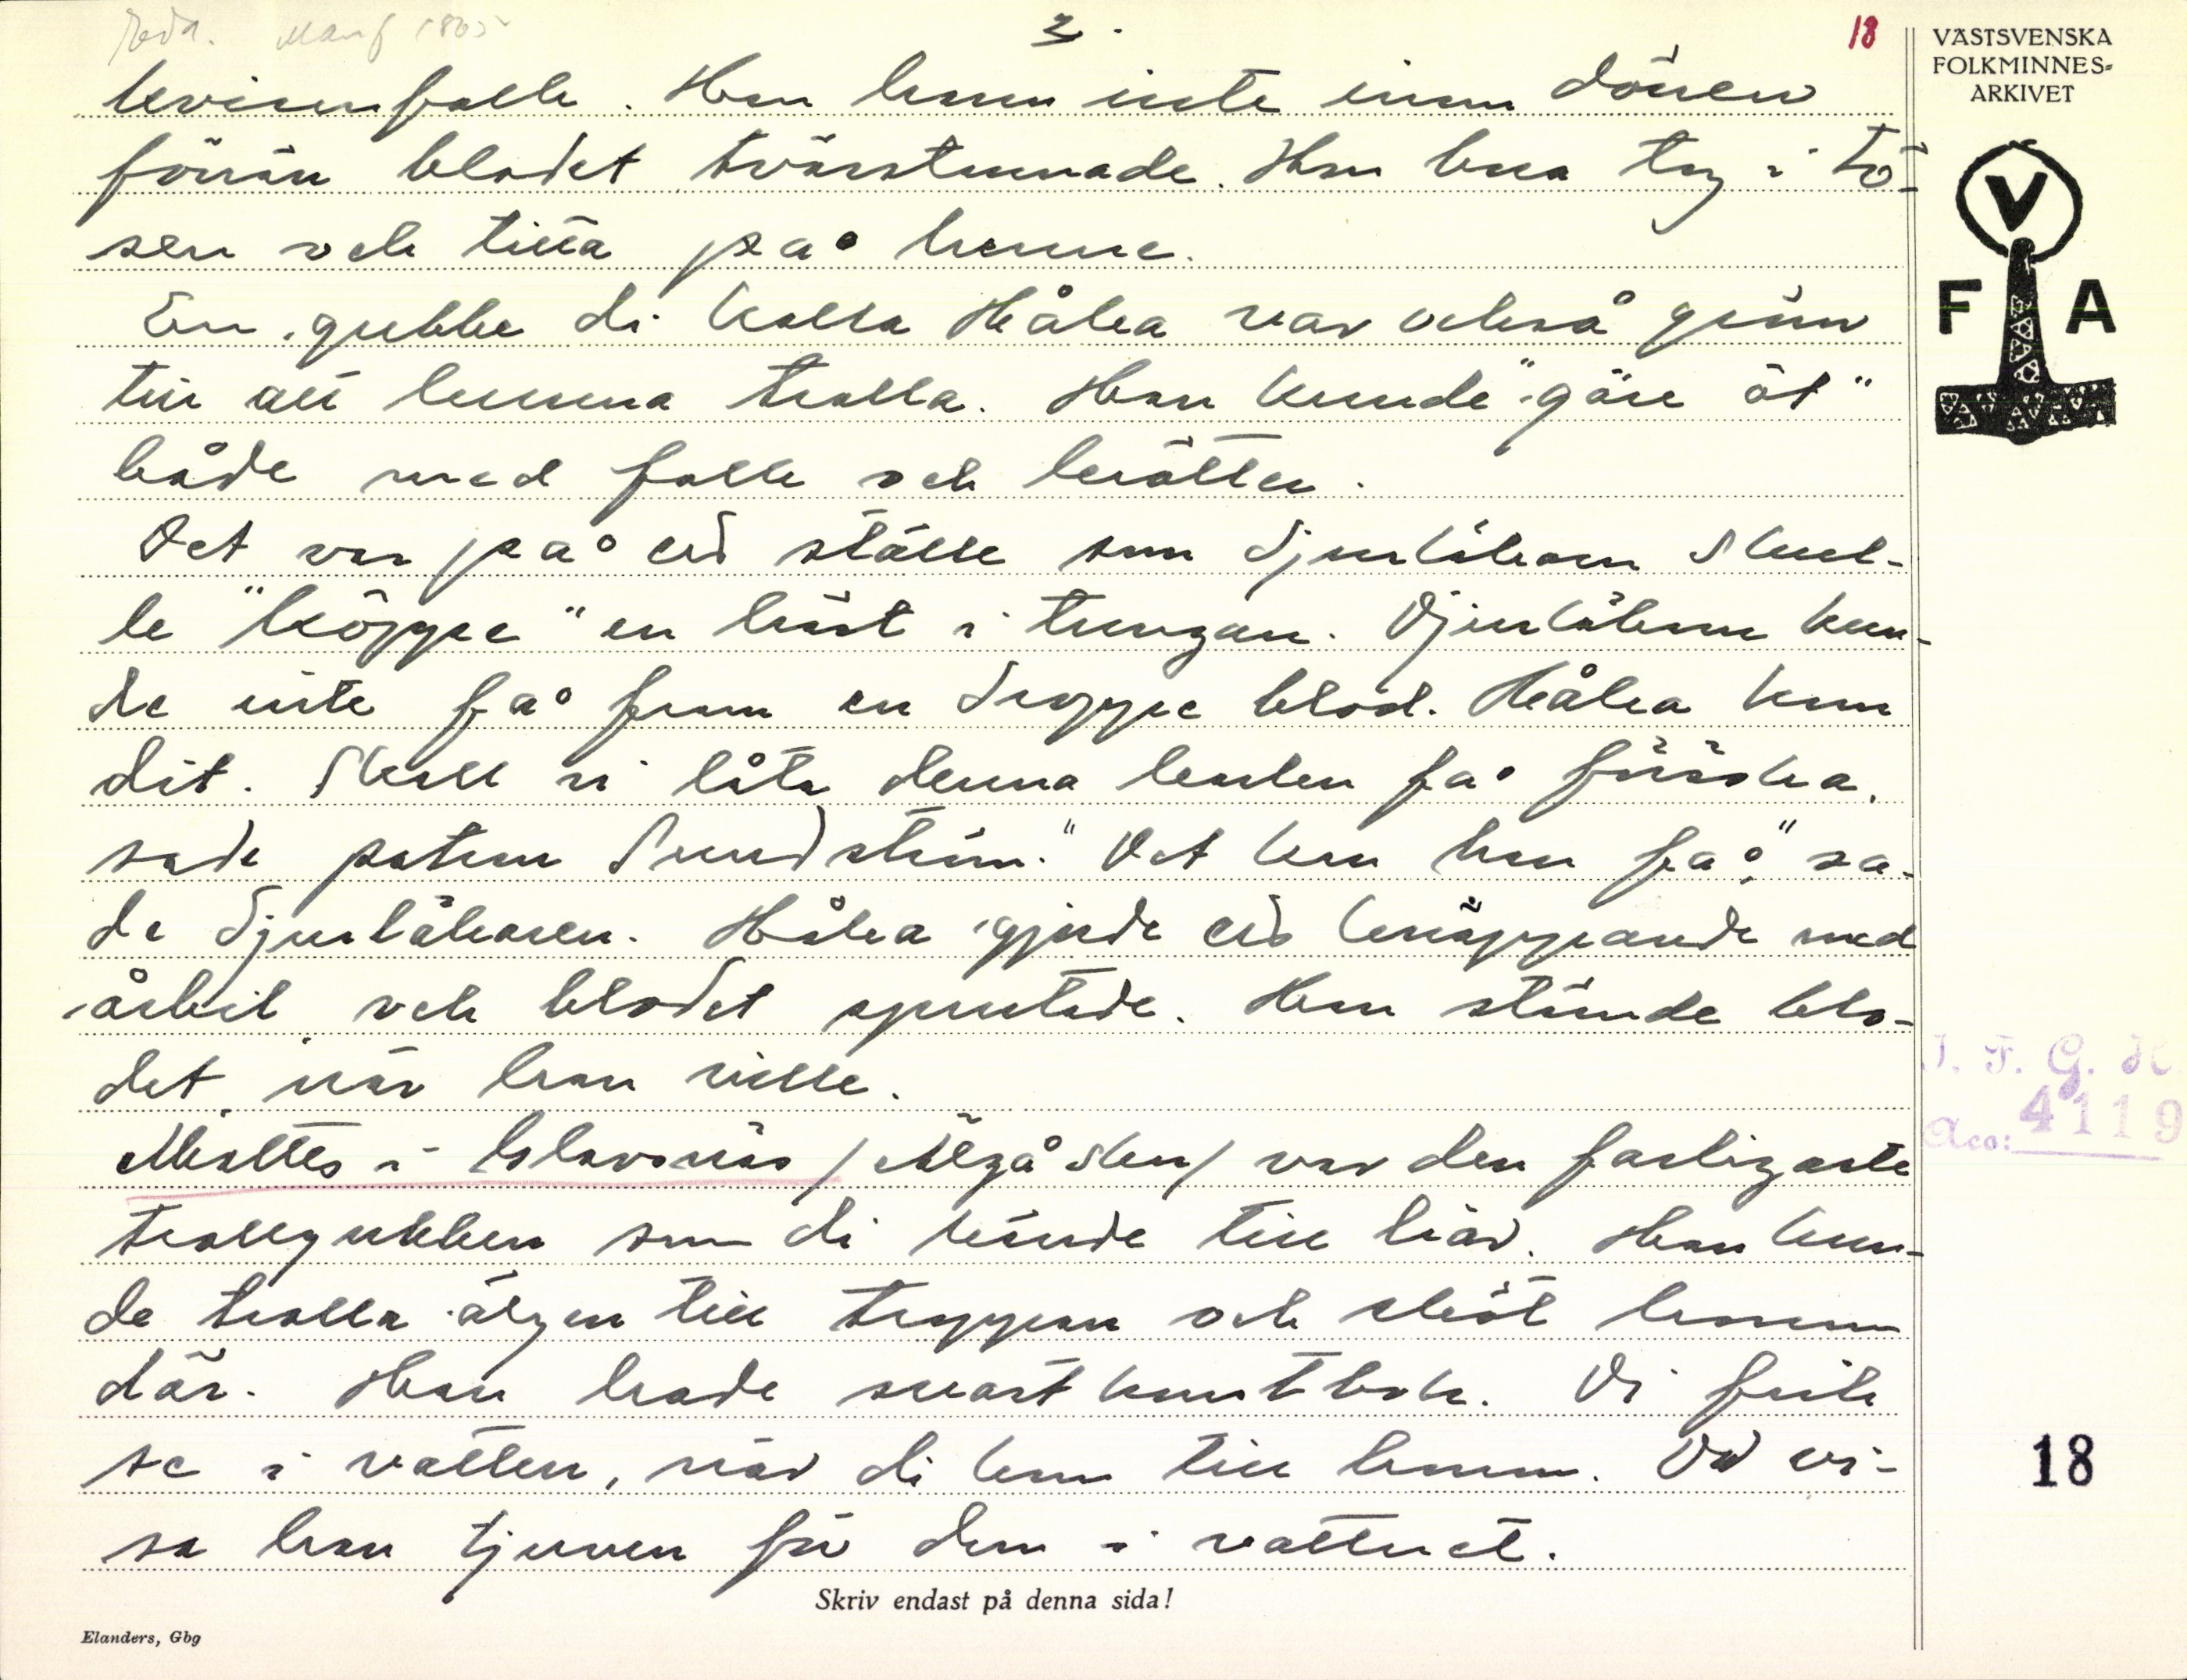 Eda. Mans f 1865
3.
18
VÄSTSVENSKA
FOLKMINNES-
ARKIVET
V
F A
kvinnfolk. Han kom inte inom dören
förrän blodet tvärstannade. Han bara tog i tö-
sen och titta på henne.
En gubbe di kalla Håka var också grinn
till att kunna trolla. Han kunde "göre åt"
både med folk och krätter.
Det var på ed ställe som djurläkarn skul-
le "köppe" en häst i tungan. Djurläkarn kun-
de inte få fram en droppe blod. Håka kom
dit. Skall vi låta denna karlen få försöka,
sade patron Sundström. "Det kan han få", sa-
de djurläkaren. Håka gjorde ed knäppande med
årbil och blodet sprutade. Han stämde blo-
det när han ville.
Mattes i Islavsnäs / Älgåsken / var den farligaste
trollgubben som di kände till här. Han kun-
de trolla älgen till trappan och sköt honom
där. Han hade svartkunstbok. Di fick
se i vatten, när di kom till honom. Då vi-
sa han tjuven för dem i vattnet.
I. F. G. H
Acc: 4119
18
Skriv endast på denna sida!
Elanders, Gbg